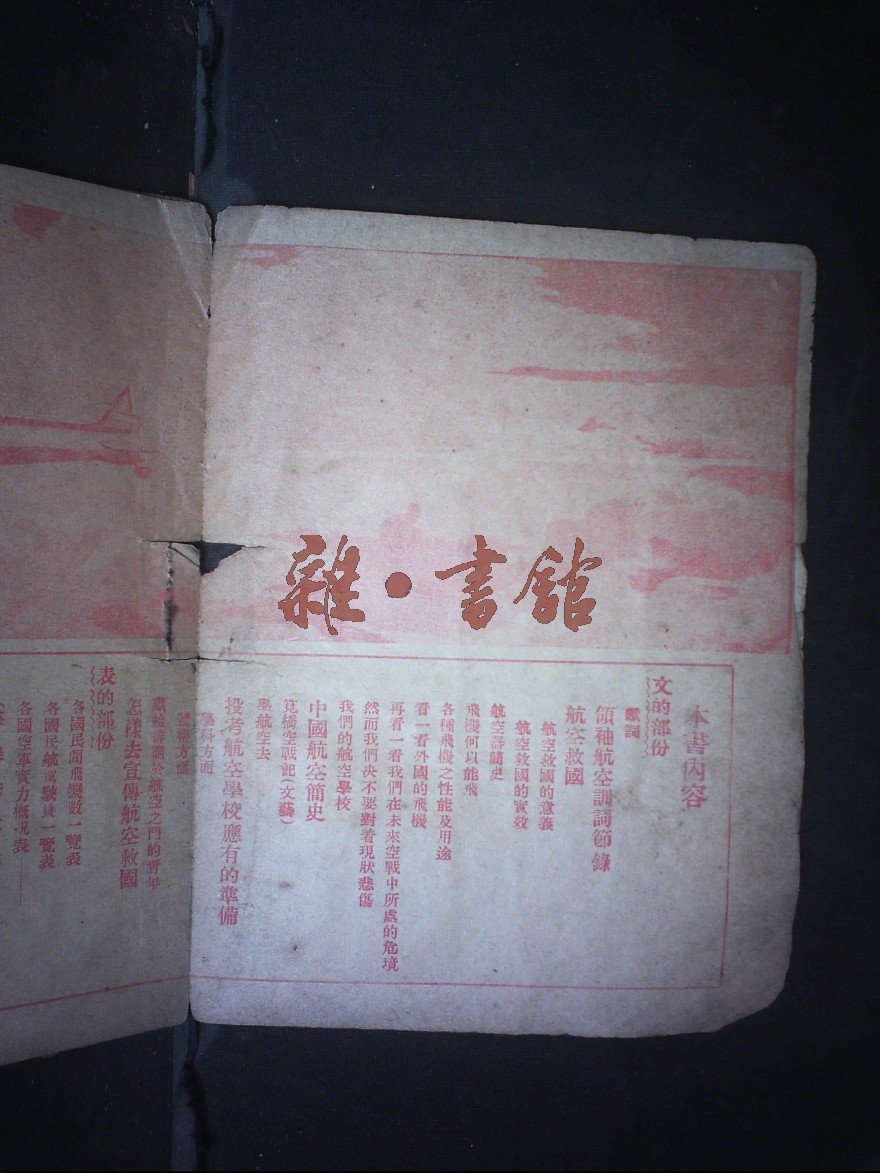 雜·書館
本書內容
文的部份
歌詞
領袖航空訓詞節錄
航空救國
航空救國的意義
航空救國的實效
航空器簡史
飛機何以能飛
各種飛機之性能及用途
看一看外國的飛機
再看一看我們在未來空戰中所處的危境
然而我們決不要對着現狀悲傷
我們的航空學校
中國航空簡史
筧橋空戰記(文藝)
學航空去
投考航空學校應有的準備
學科方面
體格方面
獻給徘徊於航空之門的青年
怎樣去宣傳航空救國
表的部份
各國民間飛機數一覽表
各國民航駕駛員一覽表
各國空軍實力概况表